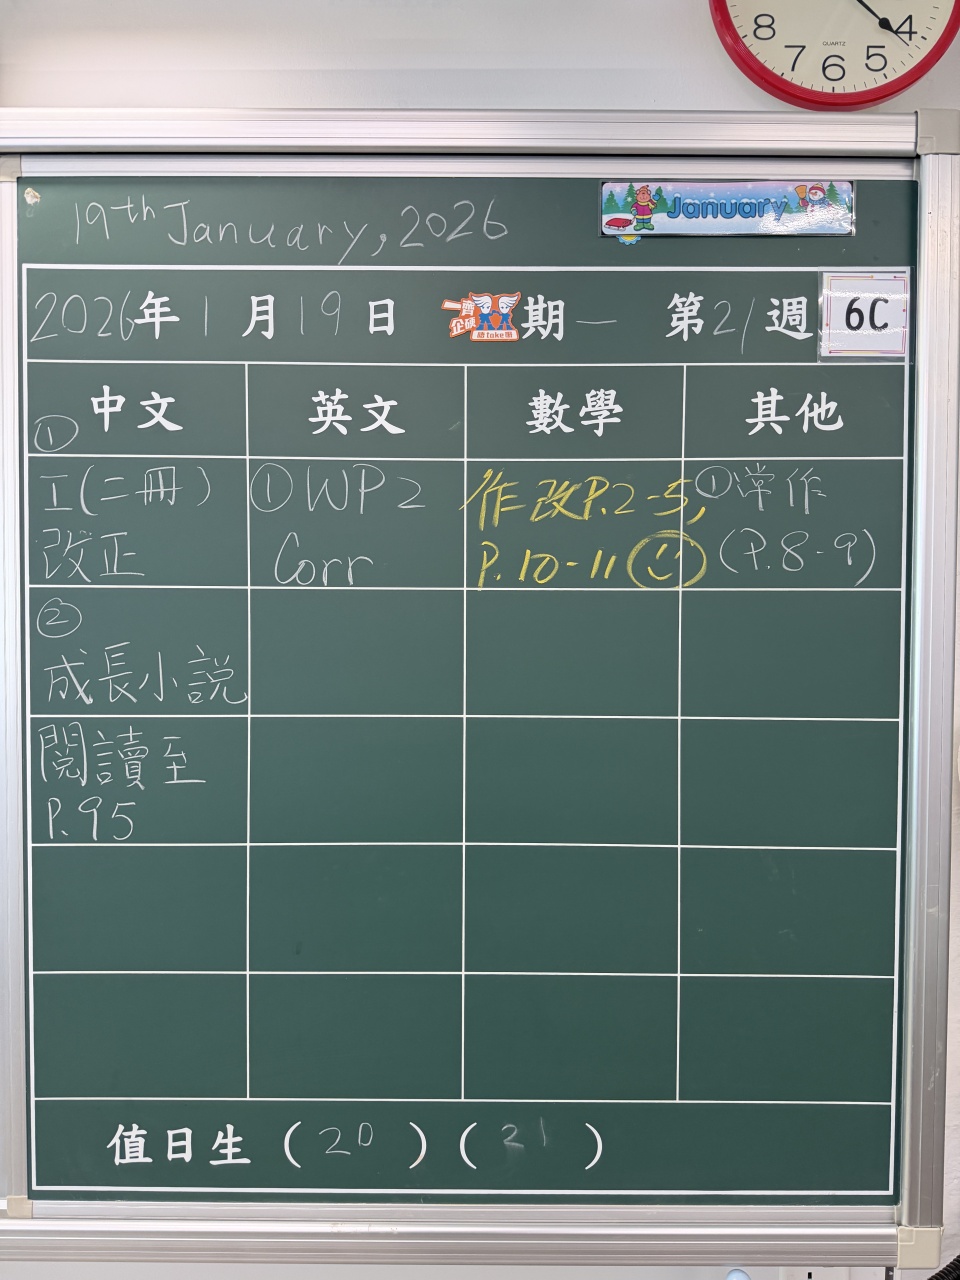 8 7 6 5 4
QUARTZ
19th January, 2026
January
2026年1月19日 期一 第21週 6C
一齊企硬
唔take嘢
中文 英文 數學 其他
①
工(二冊)
改正
②
成長小說
閱讀至
P.95
①WP2
Corr
作改P.2-5,
P.10-11
①常作
(P.8-9)
值日生(20)(21)